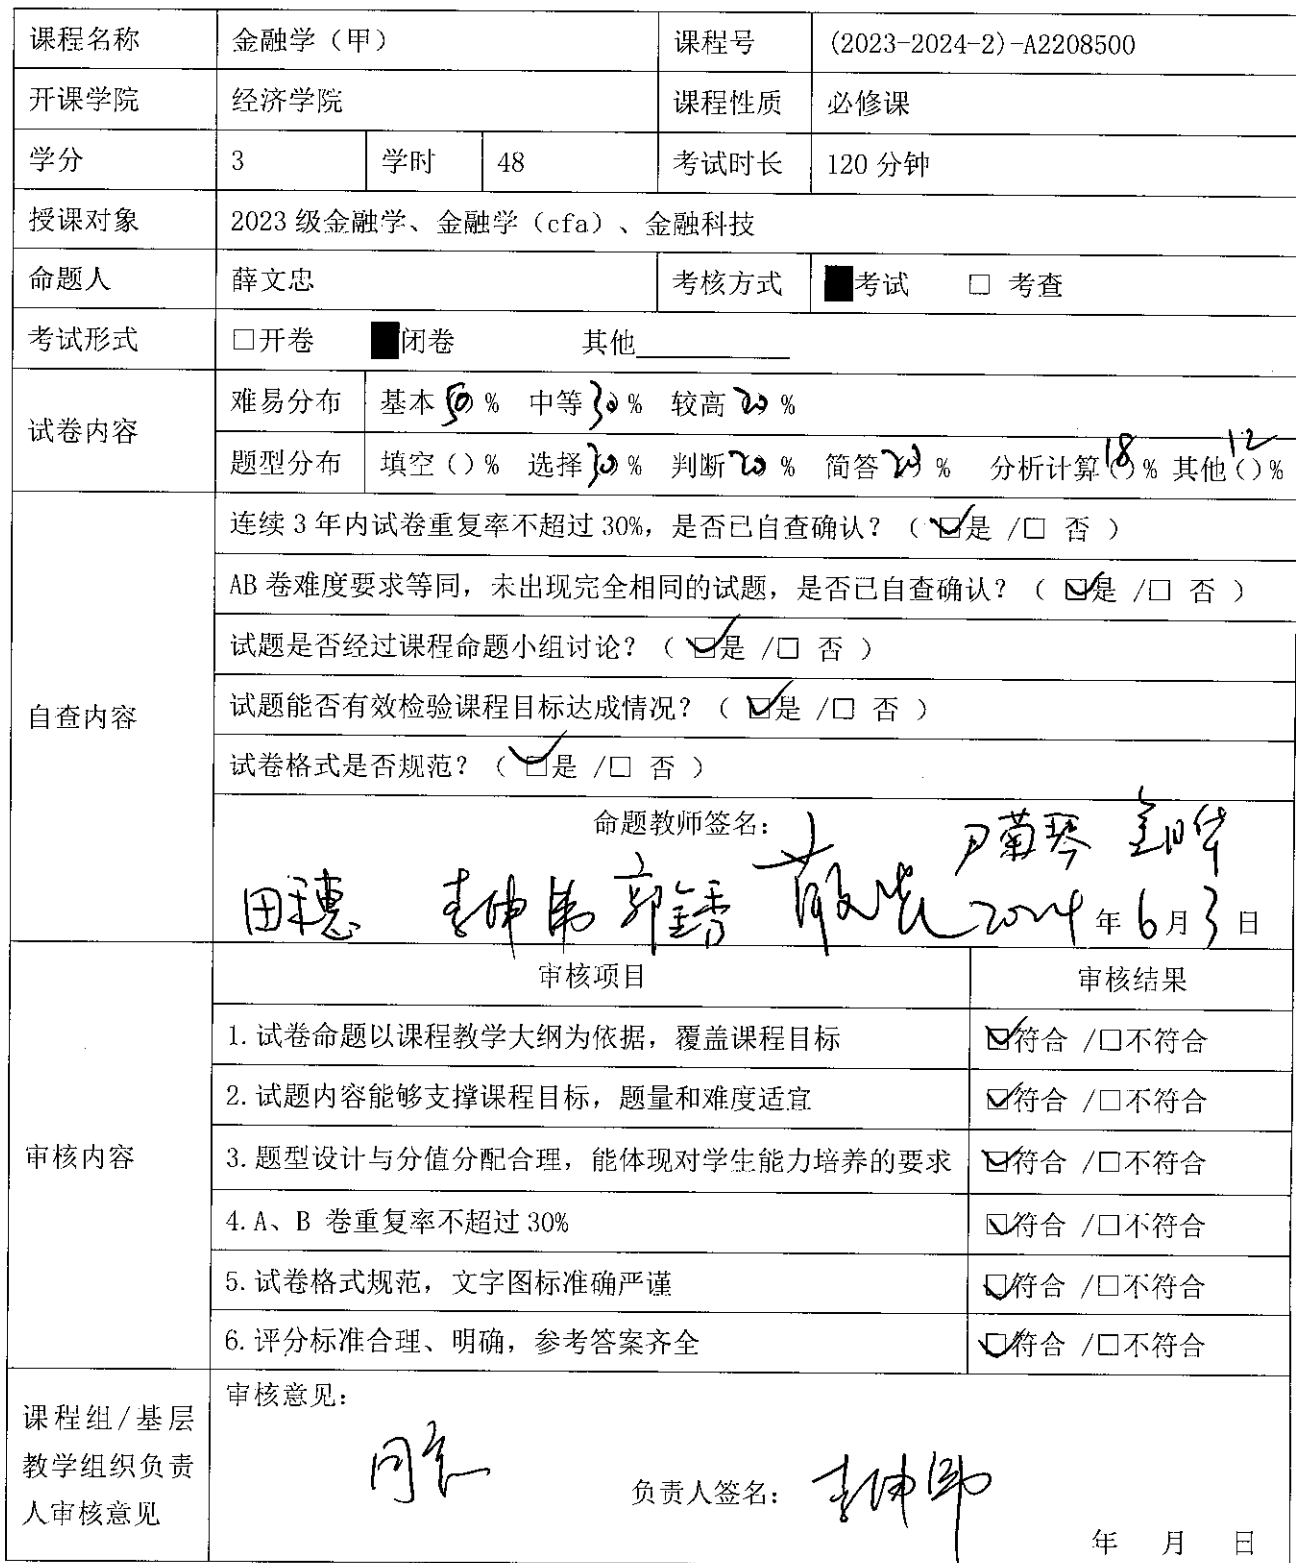 课程名称 金融学（甲） 课程号 (2023-2024-2)-A2208500
开课学院 经济学院 课程性质 必修课
学分 3 学时 48 考试时长 120 分钟
授课对象 2023 级金融学、金融学（cfa）、金融科技
命题人 薛文忠 考核方式 ■考试 □ 考查
考试形式 □开卷 ■闭卷 其他
试卷内容 难易分布 基本 50 % 中等 30 % 较高 20 %
题型分布 填空（）% 选择 30 % 判断 20 % 简答 20 % 分析计算（18）% 其他（12）%
自查内容
连续 3 年内试卷重复率不超过 30%，是否已自查确认？（ ☑是 /□ 否 ）
AB 卷难度要求等同，未出现完全相同的试题，是否已自查确认？（ ☑是 /□ 否 ）
试题是否经过课程命题小组讨论？（ ☑是 /□ 否 ）
试题能否有效检验课程目标达成情况？（ ☑是 /□ 否 ）
试卷格式是否规范？（ ☑是 /□ 否 ）
命题教师签名： 尹菊琴
田穗 李坤 薛文忠 2024 年 6 月 3 日
审核内容 审核项目 审核结果
1.试卷命题以课程教学大纲为依据，覆盖课程目标 ☑符合 /□不符合
2.试题内容能够支撑课程目标，题量和难度适宜 ☑符合 /□不符合
3.题型设计与分值分配合理，能体现对学生能力培养的要求 ☑符合 /□不符合
4.A、B 卷重复率不超过 30% ☑符合 /□不符合
5.试卷格式规范，文字图标准确严谨 ☑符合 /□不符合
6.评分标准合理、明确，参考答案齐全 ☑符合 /□不符合
课程组/基层
教学组织负责
人审核意见
审核意见：
同意
负责人签名： 李坤
年 月 日